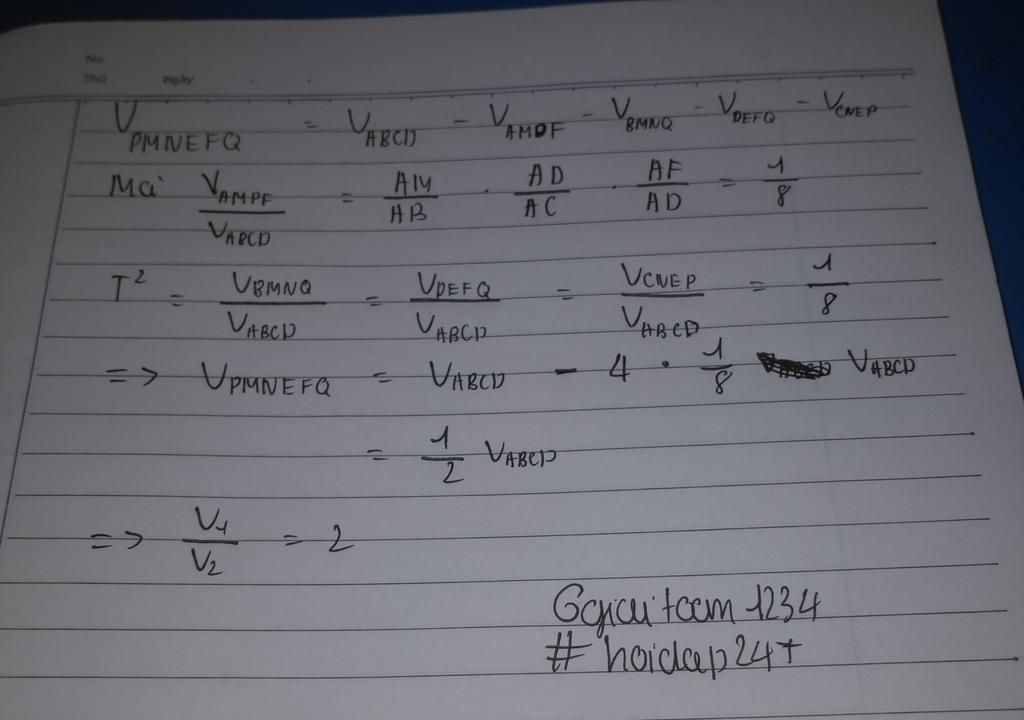 No.
Thứ ngày . .
V_PMNEFQ = V_ABCD - V_AMDF - V_BMNQ - V_DEFQ - V_CNEP
Mà V_AMPF / V_ABCD = AM/AB . AD/AC . AF/AD = 1/8
T² = V_BMNQ / V_ABCD = V_DEFQ / V_ABCD = V_CNEP / V_ABCD = 1/8
=> V_PMNEFQ = V_ABCD - 4 . 1/8 V_ABCD
= 1/2 V_ABCD
=> V₁/V₂ = 2
1234
# hoidap24+